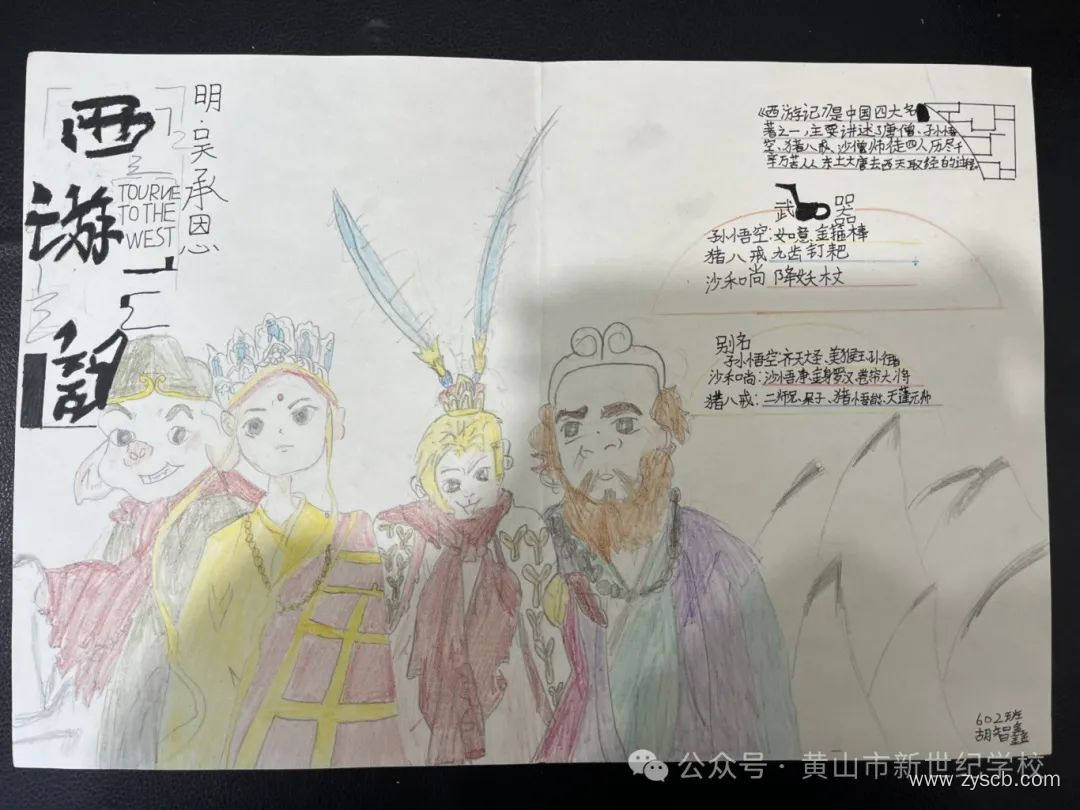 西游记
明·吴承恩
TOURNE
TO THE
WEST
《西游记》是中国四大名
著之一,主要讲述了唐僧、孙悟
空、猪八戒、沙僧师徒四人历尽千
辛万苦从东土大唐去西天取经的过程
武器
孙悟空:如意金箍棒
猪八戒 九齿钉耙
沙和尚 降妖杖
别名
孙悟空:齐天大圣、美猴王、孙行者
沙和尚:沙悟净、金身罗汉、卷帘大将
猪八戒:二师兄、呆子、猪悟能、天蓬元帅
602班
胡智鑫
公众号·黄山市新世纪学校
www.zyscb.com